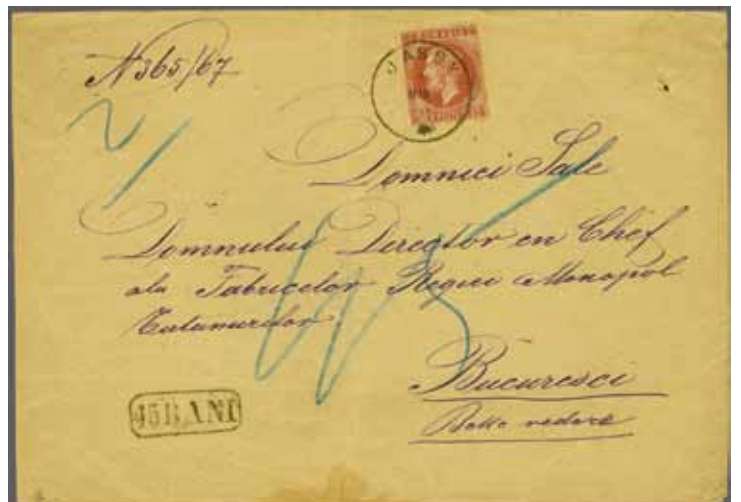 N 365/67
JASSY
Domniei Sale
Domnului Director en Chef
ala Fabricelor Regiei Monopol
Tutunurilor.
45
Bucuresci
45 BANI